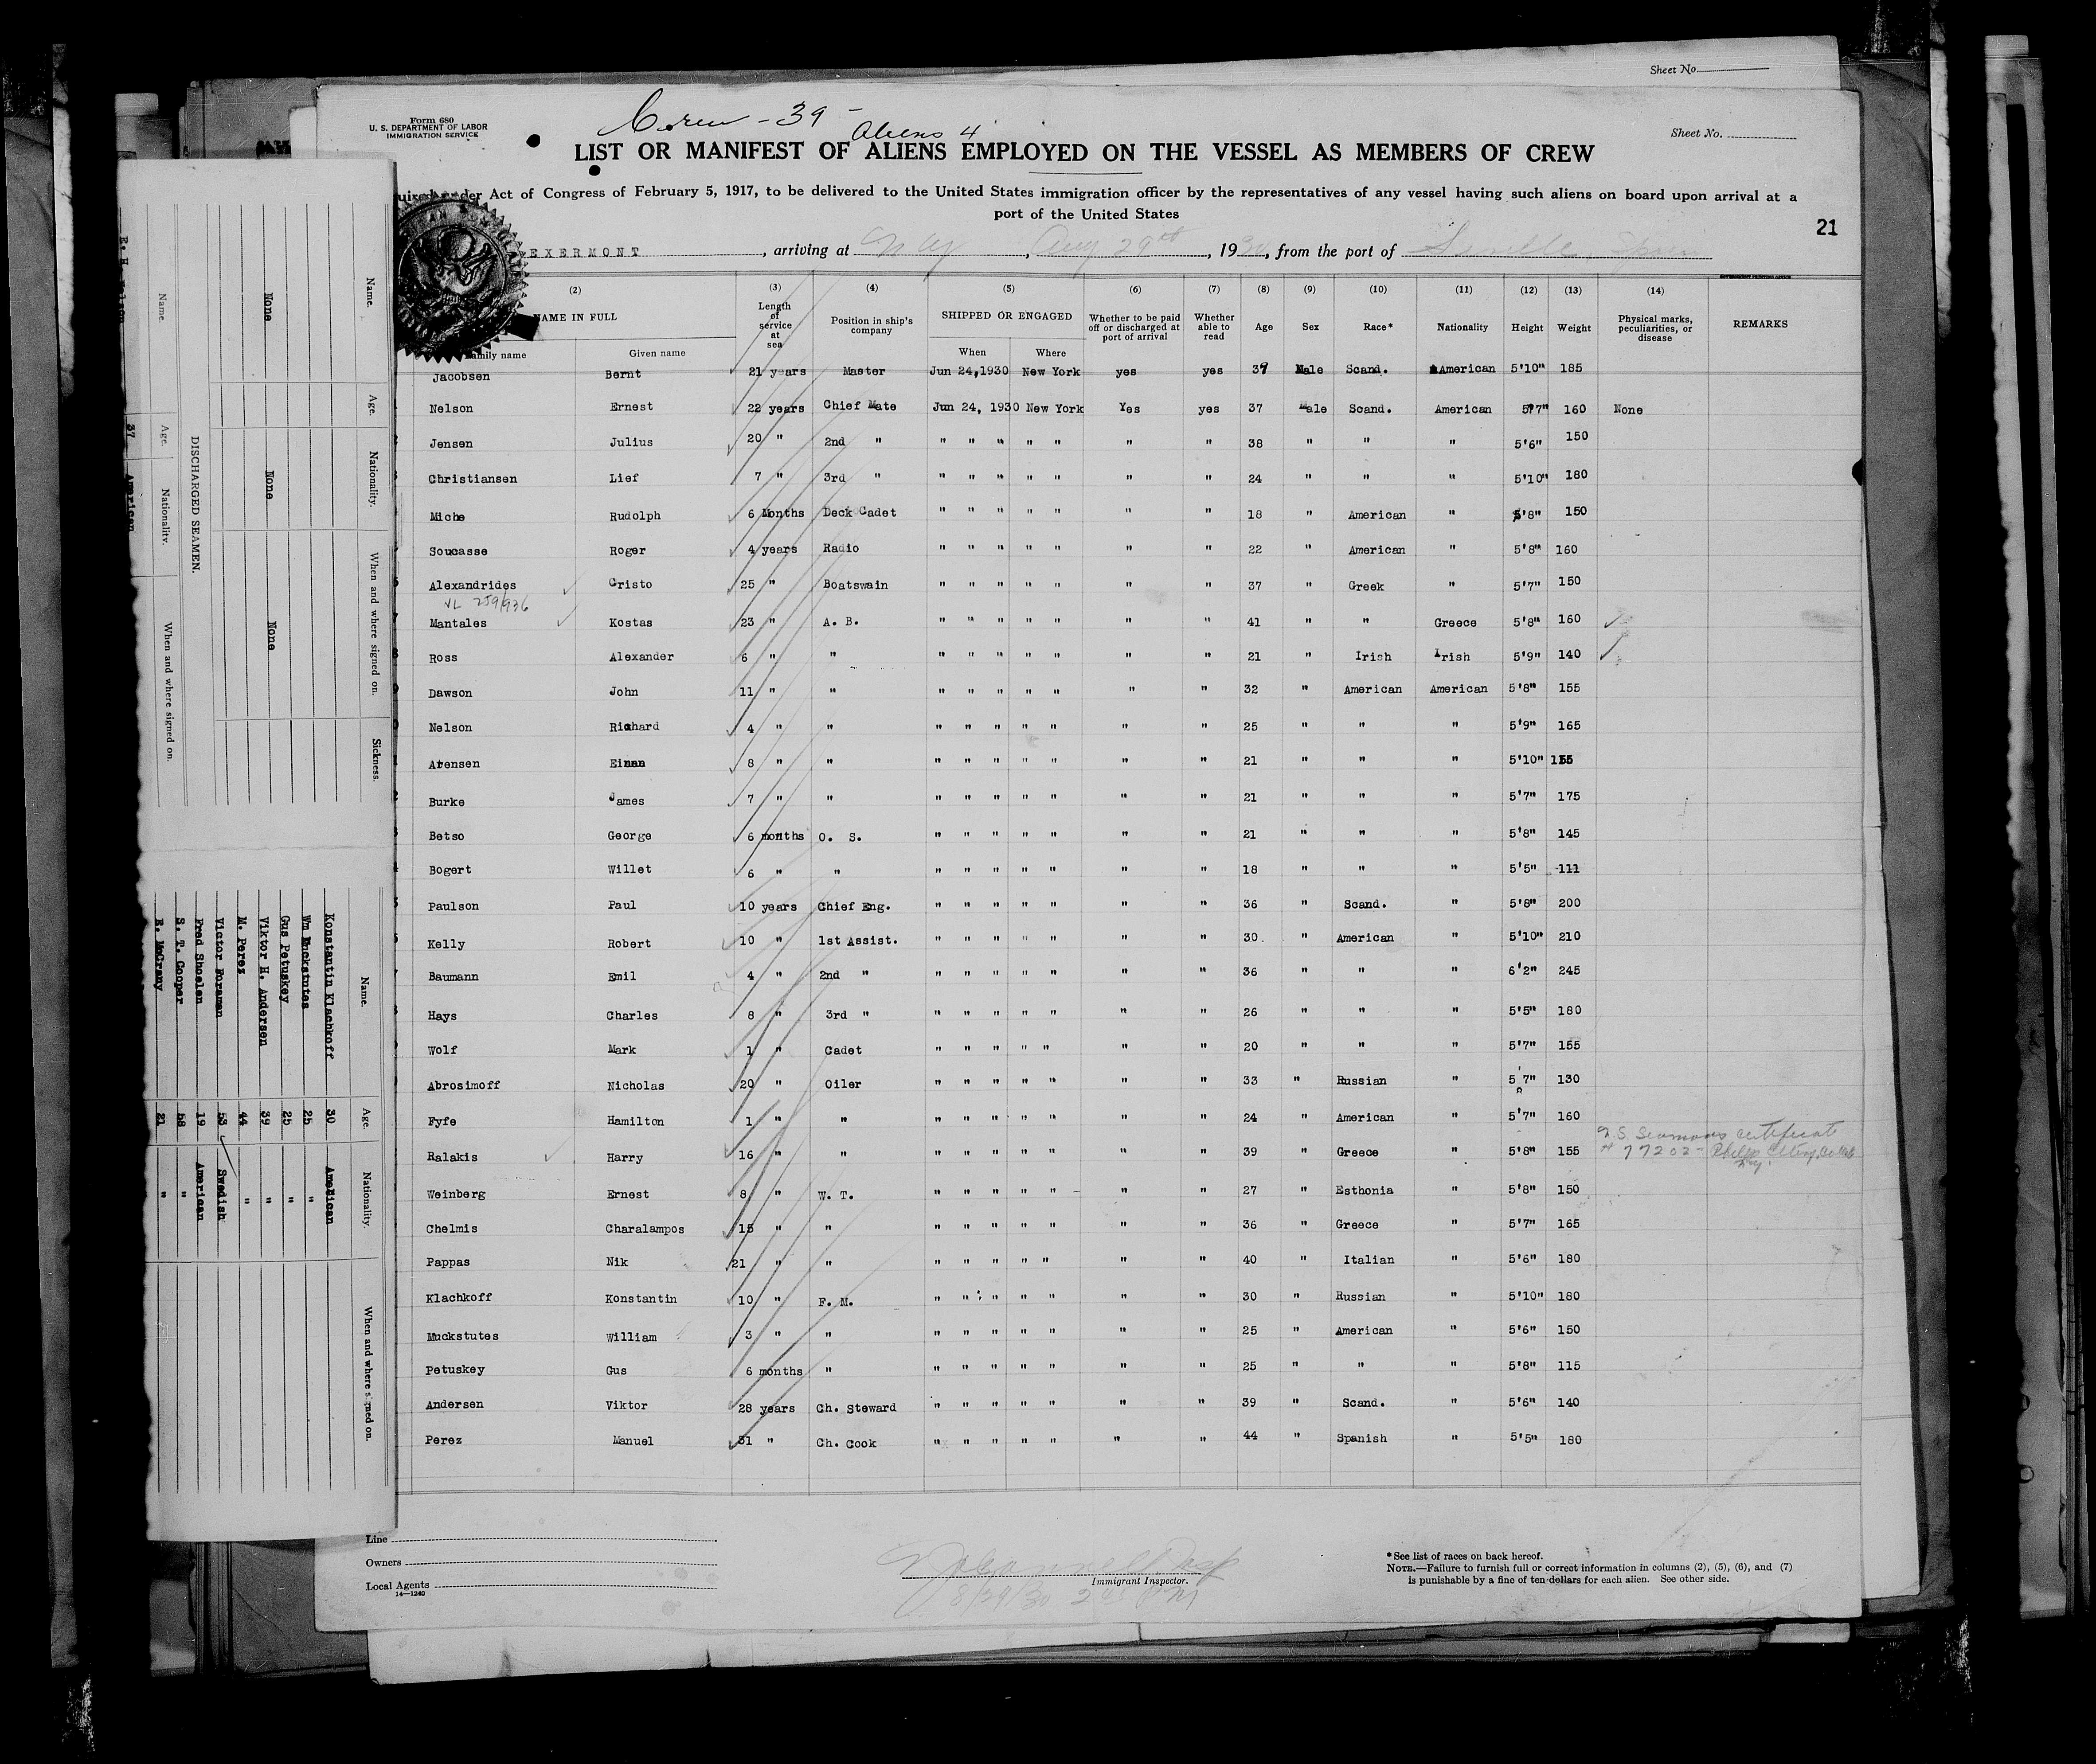 Sheet No.
Form 680
U. S. DEPARTMENT OF LABOR
IMMIGRATION SERVICE
Crew - 39 -
Aliens 4
Sheet No.
LIST OR MANIFEST OF ALIENS EMPLOYED ON THE VESSEL AS MEMBERS OF CREW
Act of Congress of February 5, 1917, to be delivered to the United States immigration officer by the representatives of any vessel having such aliens on board upon arrival at a
port of the United States
21
EXERMONT, arriving at N Y, Aug 29th, 1930, from the port of Seville Spain
(2) (3) (4) (5) (6) (7) (8) (9) (10) (11) (12) (13) (14)
NAME IN FULL Length of service at sea Position in ship's company SHIPPED OR ENGAGED Whether to be paid off or discharged at port of arrival Whether able to read Age Sex Race* Nationality Height Weight Physical marks, peculiarities, or disease REMARKS
Family name Given name When Where
Jacobsen Bernt 21 years Master Jun 24,1930 New York yes yes 39 Male Scand. American 5'10" 185
Nelson Ernest 22 years Chief Mate Jun 24, 1930 New York Yes yes 37 Male Scand. American 5'7" 160 None
Jensen Julius 20 " 2nd " " " " " " " " 38 " " " 5'6" 150
Christiansen Lief 7 " 3rd " " " " " " " " 24 " " " 5'10" 180
Miche Rudolph 6 Months Deck Cadet " " " " " " " 18 " American " 5'8" 150
Soucasse Roger 4 years Radio " " " " " " " 22 " American " 5'8" 160
Alexandrides Cristo 25 " Boatswain " " " " " " " 37 " Greek " 5'7" 150
VL 259/936
Mantales Kostas 23 " A. B. " " " " " " " 41 " " Greece 5'8" 160
Ross Alexander 6 " " " " " " " " " 21 " Irish Irish 5'9" 140
Dawson John 11 " " " " " " " " " 32 " American American 5'8" 155
Nelson Richard 4 " " " " " " " " " 25 " " " 5'9" 165
Arensen 8 " " " " " " " " " 21 " " " 5'10"
Burke James 7 " " " " " " " " " 21 " " " 5'7" 175
Betso George 6 months O. S. " " " " " " " 21 " " " 5'8" 145
Bogert Willet 6 " " " " " " " " " 18 " " " 5'5" 111
Paulson Paul 10 years Chief Eng. " " " " " " " 36 " Scand. " 5'8" 200
Kelly Robert 10 " 1st Assist. " " " " " " " 30 " American " 5'10" 210
Baumann Emil 4 " 2nd " " " " " " " " 36 " " " 6'2" 245
Hays Charles 8 " 3rd " " " " " " " " 26 " " " 5'5" 180
Wolf Mark 1 " Cadet " " " " " " " 20 " " " 5'7" 155
Abrosimoff Nicholas 20 " Oiler " " " " " " " 33 " Russian " 5'7" 130
Fyfe Hamilton 1 " " " " " " " " " 24 " American " 5'7" 160
Ralakis Harry 16 " " " " " " " " " 39 " Greece " 5'8" 155 U.S. Seamans certificate
# 77202 - Philip Elting, N.Y.
Weinberg Ernest 8 " W. T. " " " " " " " 27 " Esthonia " 5'8" 150
Chelmis Charalampos 15 " " " " " " " " " 36 " Greece " 5'7" 165
Pappas Nik 21 " " " " " " " " " 40 " Italian " 5'6" 180
Klachkoff Konstantin 10 " F. M. " " " " " " " 30 " Russian " 5'10" 180
Muckstutes William 3 " " " " " " " " " 25 " American " 5'6" 150
Petuskey Gus 6 months " " " " " " " " 25 " " " 5'8" 115
Andersen Viktor 28 years Ch. Steward " " " " " " " 39 " Scand. " 5'6" 140
Perez Manuel 31 " Ch. Cook " " " " " " " 44 " Spanish " 5'5" 180
Line
Owners
Local Agents
14-1240
Immigrant Inspector.
8/29/30 2 PM
*See list of races on back hereof.
NOTE.—Failure to furnish full or correct information in columns (2), (5), (6), and (7)
is punishable by a fine of ten dollars for each alien. See other side.
Name. Age. Nationality. When and where signed on. Sickness.
None None None
DISCHARGED SEAMEN.
Name. Age. Nationality. When and where signed on.
37 American
Name. Age. Nationality. When and where signed on.
Konstantin Klachkoff 30 American
Wm Muckstutes 25 "
Gus Petuskey 25 "
Viktor H. Andersen 39 "
M. Perez 44 "
Victor Foraman 53 Swedish
Fred Shoelen 19 American
S. T. Cooper 58 "
R. McCrany 21 "